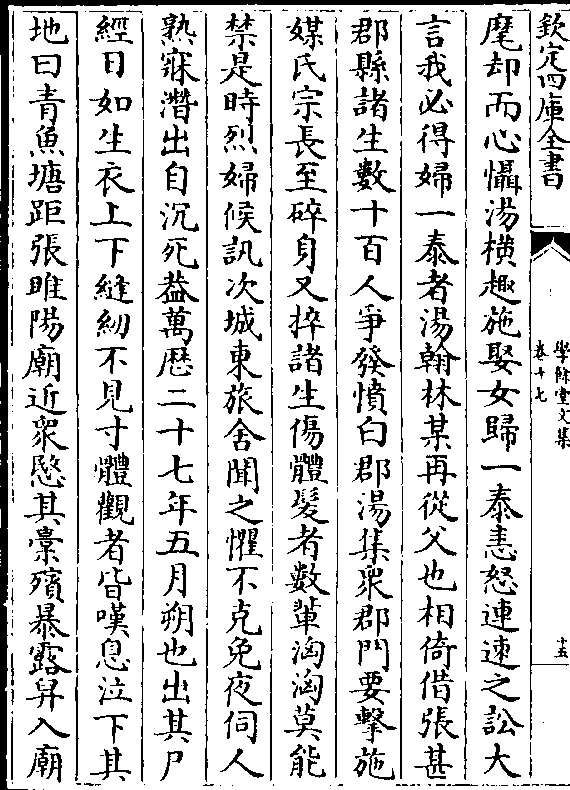 欽定四庫全書
學餘堂文集
卷十七
十五
麾却而心懾湯横趣施娶女歸一泰恚怒連速之訟大
言我必得婦一泰者湯翰林某再從父也相倚借張甚
郡縣諸生數十百人爭發憤白郡湯集衆郡門要擊施
媒氏宗長至碎身又捽諸生傷體髮者數輩洶洶莫能
禁是時烈婦候訊次城東旅舍聞之懼不克免夜伺人
熟寐潛出自沉死葢萬厯二十七年五月朔也出其尸
經日如生衣上下縫紉不見寸體觀者皆嘆息泣下其
地曰青魚塘距張睢陽廟近衆愍其槀殯暴露舁入廟